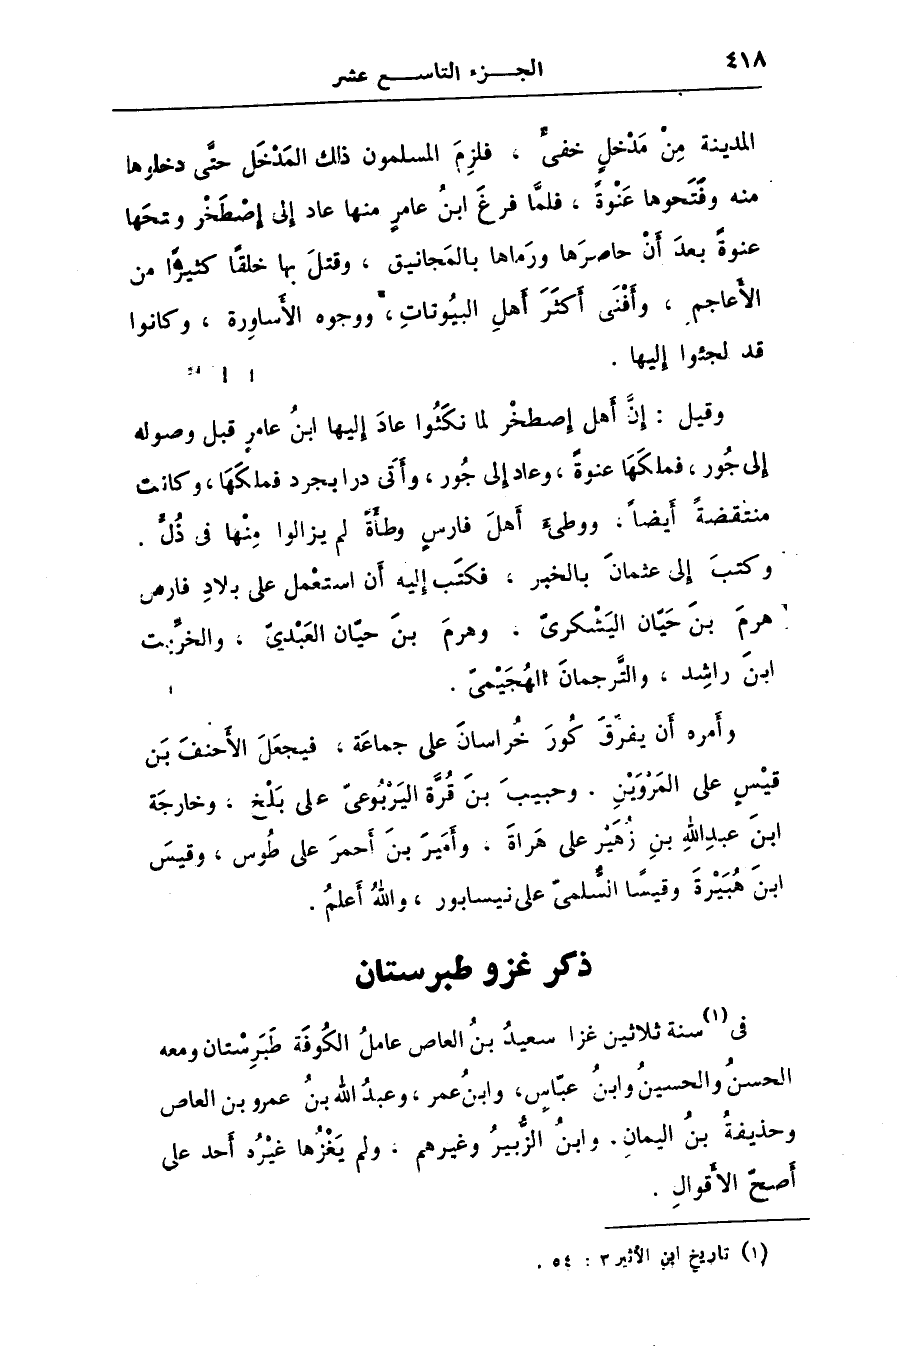 ٤١٨
الجـــزء التاســـع عشر
المدينة مِنْ مَدْخلٍ خفىٍّ ، فلزِمَ المسلمون ذالك المَدْخَل حتَّى دخلوها
منه وفَتَحوها عَنْوةً ، فلمَّا فرغَ ابنُ عامرٍ منها عاد إلى إصْطَخْر وتحَها
عنوةً بعدَ أنْ حاصرَها ورَماها بالمَجانيق ، وقتلَ بها خلقًا كثيرًا من
الأَعاجم ، وأَفْنَى أكثَرَ أهلِ البيُوتاتِ، ووجوه الأَساوِرة ، وكانوا
قد لجئوا إليها .
وقيل : إنَّ أهل إصطخْر لما نكَثُوا عادَ إليها ابنُ عامرٍ قبل وصوله
إلى جُور ، فملكَهَا عنوةً ، وعاد إلى جُور ، وأتى درابجرد فملكَهَا ، وكانت
منتقضةً أيضاً ، ووطىءَ أهلَ فارسٍ وطأَةً لم يزالوا مِنْها فى ذُلٍّ .
وكتبَ إلى عثمانَ بالخبر ، فكتَب إليه أن استعْمل على بلادِ فارس
هرمَ بنَ حَيّان اليَشْكرىّ . وهرمَ بنَ حيّان العَبْدىّ ، والخرِّيت
ابنَ راشِد ، والتَّرجمانَ الهُجَيْمىّ .
وأَمره أن يفرّقَ كُورَ خُراسانَ على جماعَة ، فيجعَلَ الأَحنفَ بَن
قيْسٍ على المَرْوَيْنِ . وحبيبَ بنَ قُرَّة اليَرْبُوعىّ على بَلْخ ، وخارجَة
ابنَ عبدِاللهِ بنِ زُهَيْر على هَراةَ ، وأَميَرَ بنَ أحمرَ على طُوس ، وقيسَ
ابنَ هُبَيْرةَ وقيسًا السُّلمىّ على نيسابور ، واللهُ أَعلمُ .
ذكر غزو طبرستان
فى (١) سنة ثلاثين غزا سعيدُ بنُ العاص عاملُ الكُوفَة طَبَرِسْتان ومعه
الحسنُ والحسينُ وابنُ عبّاسٍ، وابنُ عمر ، وعبدُ الله بنُ عمرو بن العاص
وحذيفةُ بنُ اليمانِ . وابنُ الزُّبيرُ وغيرهم ، ولم يَغْزُها غيْرُه أحد على
أصحّ الأَقوالِ .
(١) تاريخ ابن الأثير ٣ : ٥٤ .